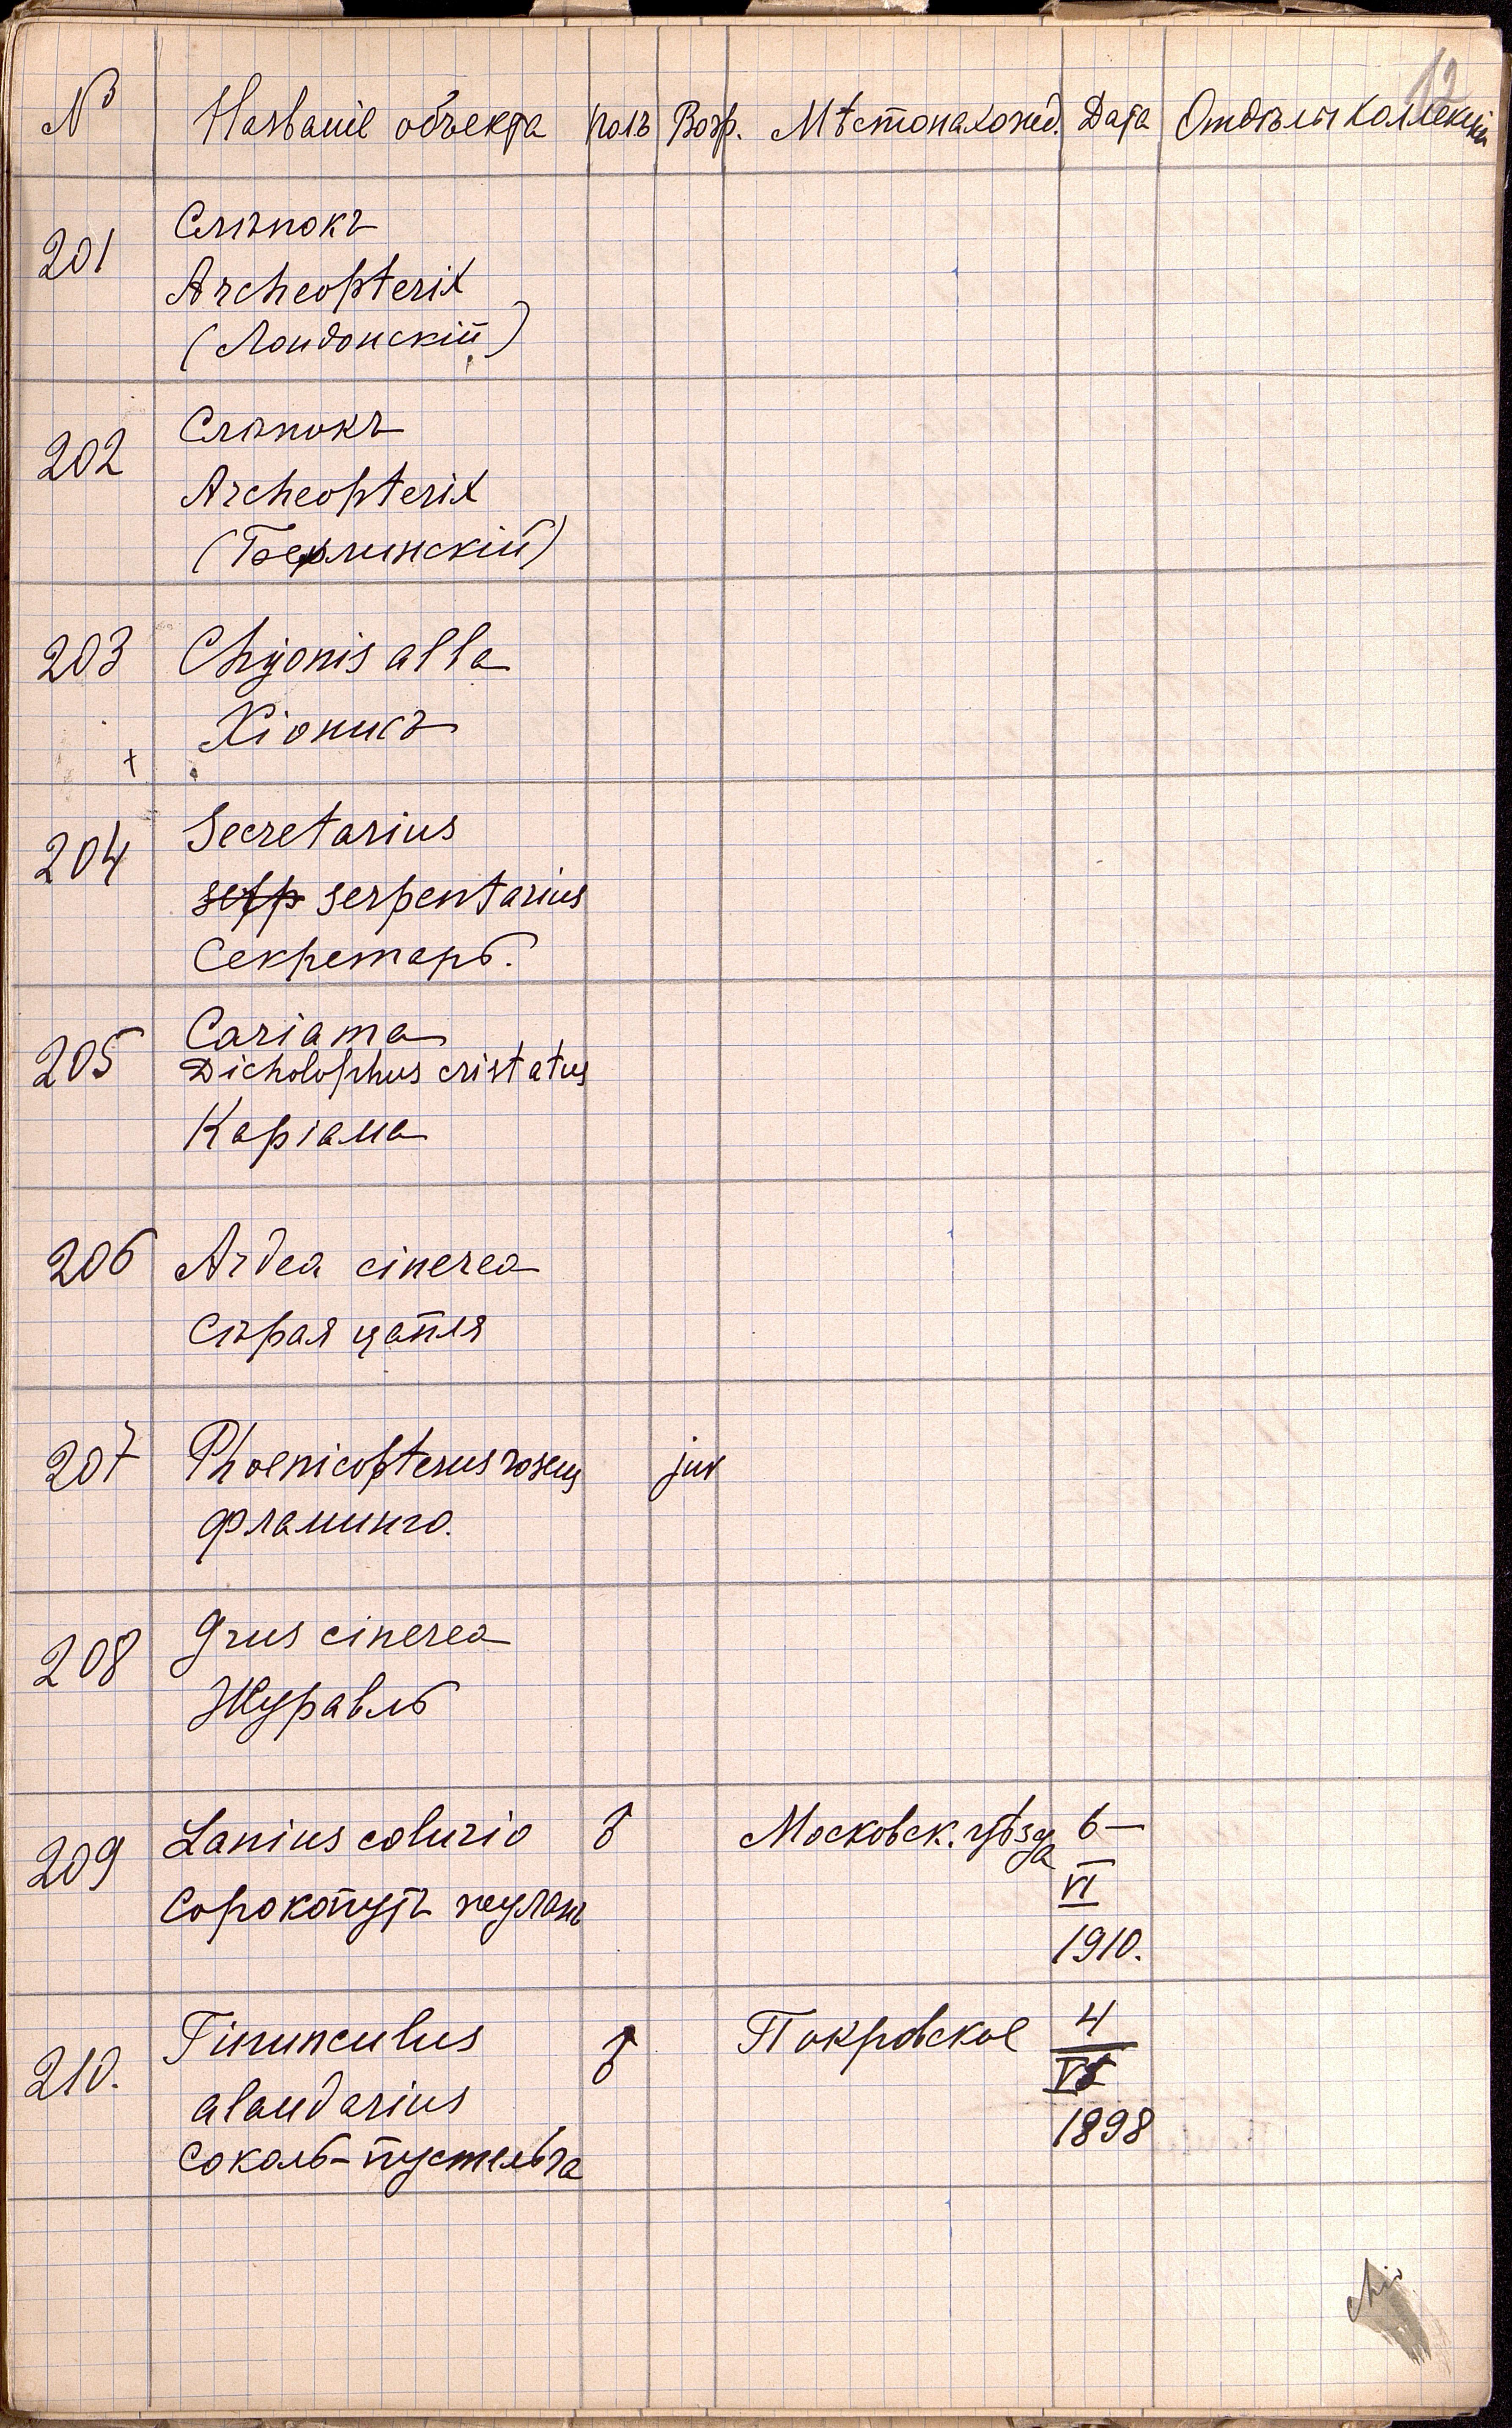 12
№ Названіе объекта полъ Возр. Мѣстонахожд. Дата Отдѣлы коллекціи
201 Слѣпокъ
Archeopterix
(Лондонскій)
202 Слѣпокъ
Archeopterix
(Берлинскій)
203 Chyonis alba
Хіонисъ
+
204 Secretarius
serp serpentarius
Секретарь.
205 Cariama
Dicholophus cristatus
Каріама
206 Ardea cinerea
Сѣрая цапля
207 Phoenicopterus roseus juv
Фламинго.
208 Grus cinerea
Журавль
209 Lanius colurio ♂ Московск. уѣзда 6–
Сорокопутъ жуланъ VI
1910.
210. Tinunculus ♂ Покровское 4
alaudarius VI
Соколъ-пустельга 1898
chio